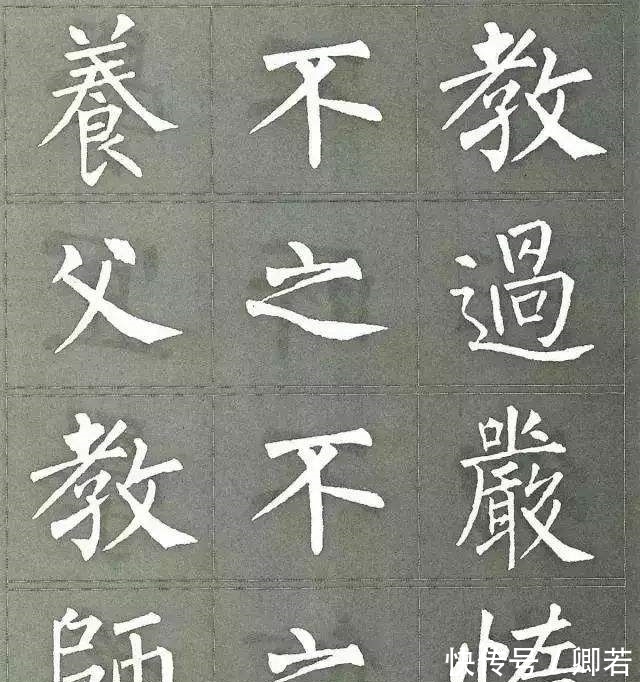 養不教
父之過
教不嚴
師之惰
快传号/卿若